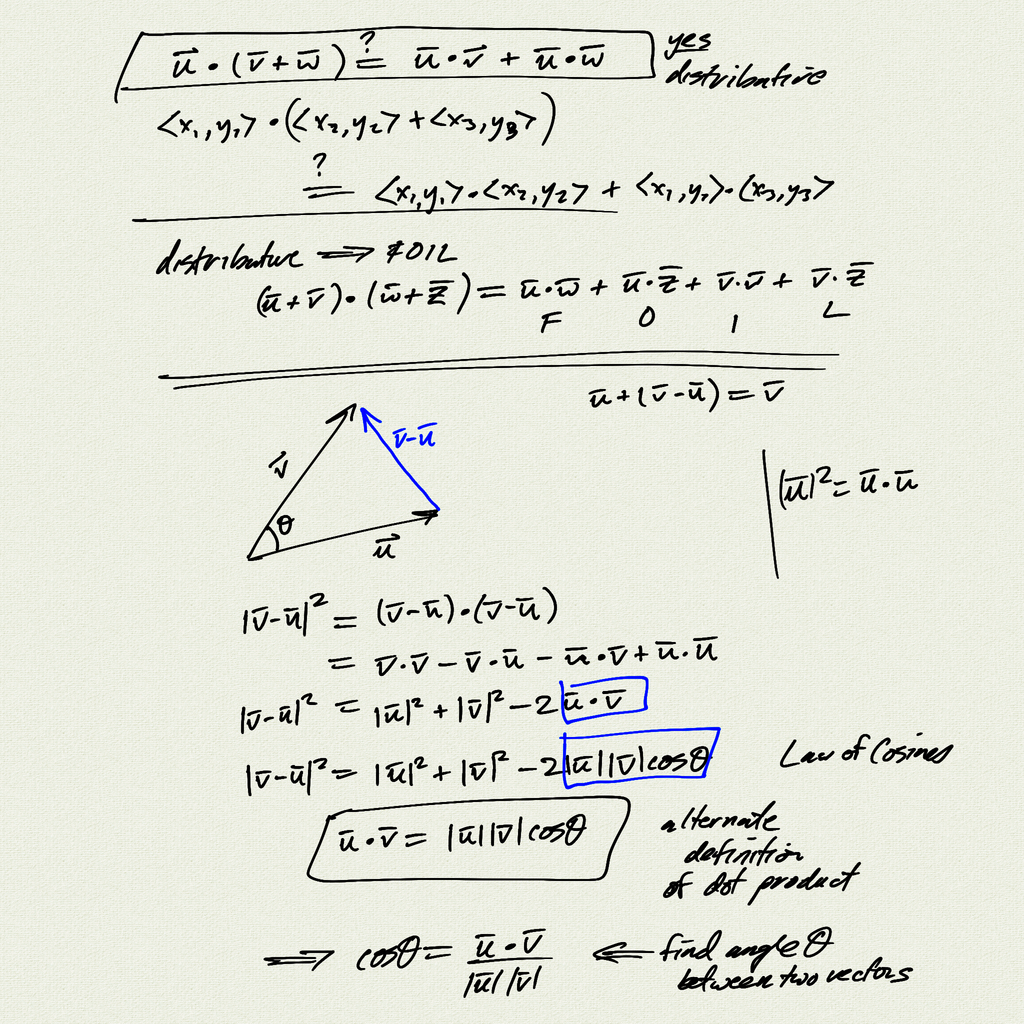 u⃗ · (v̄ + w̄) ≟ ū · v⃗ + ū · w̄ yes
distributive
<x₁, y₁> · (<x₂, y₂> + <x₃, y₃>)
≟ <x₁, y₁> · <x₂, y₂> + <x₁, y₁> · <x₃, y₃>
distributive ⟹ FOIL
(ū + v̄) · (w̄ + z̄) = ū · w̄ + ū · z̄ + v̄ · v̄ + v̄ · z̄
F O I L
ū + (v̄ - ū) = v̄
v̄-ū
v⃗
|ū|² = ū · ū
θ
u⃗
|v̄-ū|² = (v̄-ū) · (v̄-ū)
= v̄ · v̄ - v̄ · ū - ū · v̄ + ū · ū
|v̄-ū|² = |ū|² + |v̄|² - 2 ū · v̄
|v̄-ū|² = |ū|² + |v̄|² - 2 |ū||v̄| cosθ Law of Cosines
ū · v̄ = |ū||v̄| cosθ alternate
definition
of dot product
⟹ cosθ = ū · v̄ / |ū| |v̄| ⟸ find angle θ
between two vectors